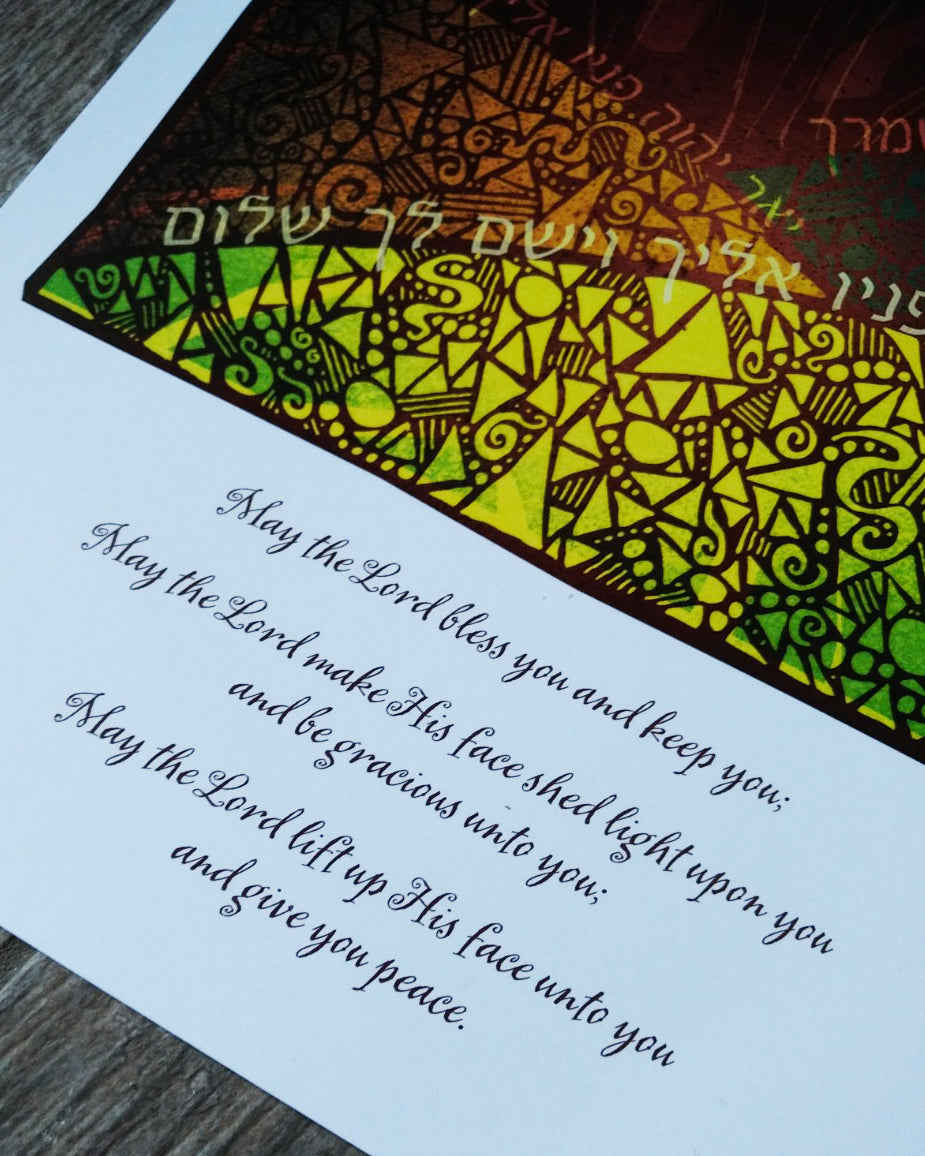 יאר יהוה פניו
פניו אליך וישם לך שלום
May the Lord bless you and keep you;
May the Lord make His face shed light upon you
and be gracious unto you;
May the Lord lift up His face unto you
and give you peace.